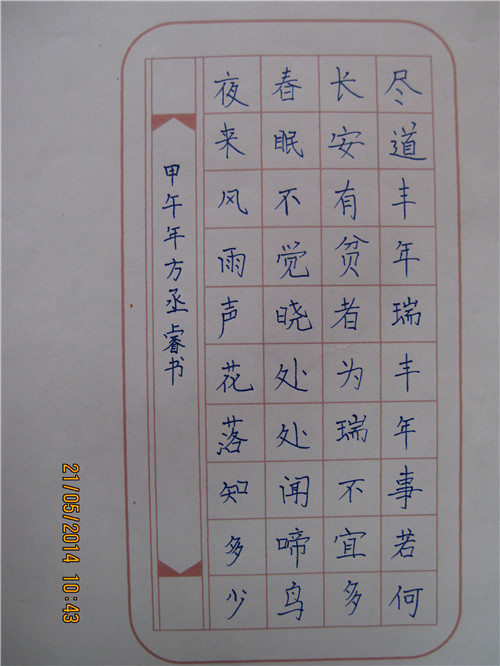 尽道丰年瑞丰年事若何
长安有贫者为瑞不宜多
春眠不觉晓处处闻啼鸟
夜来风雨声花落知多少
甲午年方丞睿书
21/05/2014 10:43